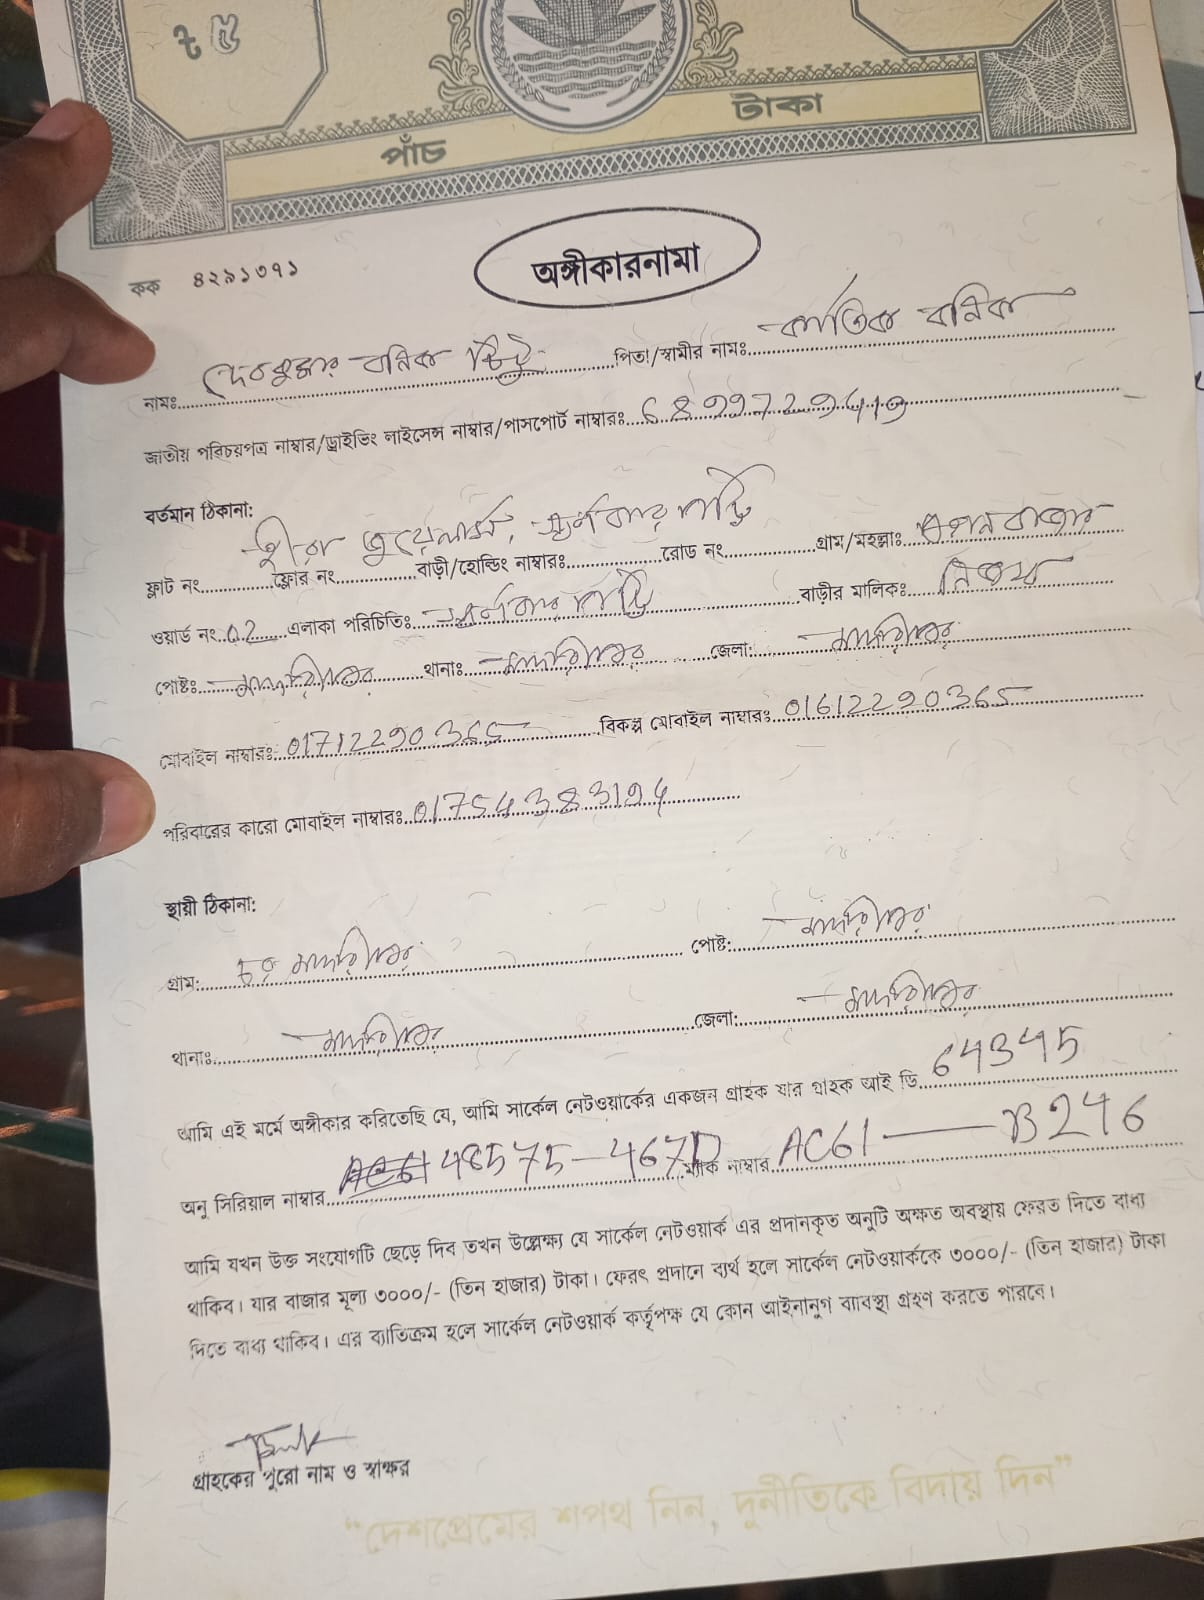 পাঁচ টাকা
কক ৪২৯১৩৭১
অঙ্গীকারনামা
নামঃ বনিক পিতা/স্বামীর নামঃ কার্তিক বনিক
জাতীয় পরিচয়পত্র নাম্বার/ড্রাইভিং লাইসেন্স নাম্বার/পাসপোর্ট নাম্বারঃ
বর্তমান ঠিকানা:
হীরা জুয়েলার্স, স্বর্নকার পট্টি
ফ্লাট নং ফ্লোর নং বাড়ী/হোল্ডিং নাম্বারঃ রোড নং গ্রাম/মহল্লাঃ
ওয়ার্ড নং 02 এলাকা পরিচিতিঃ স্বর্নকার পট্টি বাড়ীর মালিকঃ নিজস্ব
পোষ্টঃ মাদারীপুর থানাঃ মাদারীপুর জেলা: মাদারীপুর
মোবাইল নাম্বারঃ 01712290365 বিকল্প মোবাইল নাম্বারঃ 01612290365
পরিবারের কারো মোবাইল নাম্বারঃ
স্থায়ী ঠিকানা:
গ্রাম: মাদারীপুর পোষ্ট: মাদারীপুর
থানাঃ মাদারীপুর জেলা: মাদারীপুর
আমি এই মর্মে অঙ্গীকার করিতেছি যে, আমি সার্কেল নেটওয়ার্কের একজন গ্রাহক যার গ্রাহক আই ডি 64345
অনু সিরিয়াল নাম্বার 48575-467D ম্যাক নাম্বার AC61 — B246
আমি যখন উক্ত সংযোগটি ছেড়ে দিব তখন উল্লেক্ষ্য যে সার্কেল নেটওয়ার্ক এর প্রদানকৃত অনুটি অক্ষত অবস্থায় ফেরত দিতে বাধ্য
থাকিব। যার বাজার মূল্য ৩০০০/- (তিন হাজার) টাকা। ফেরৎ প্রদানে ব্যর্থ হলে সার্কেল নেটওয়ার্ককে ৩০০০/- (তিন হাজার) টাকা
দিতে বাধ্য থাকিব। এর ব্যাতিক্রম হলে সার্কেল নেটওয়ার্ক কর্তৃপক্ষ যে কোন আইনানুগ ব্যাবস্থা গ্রহণ করতে পারবে।
গ্রাহকের পুরো নাম ও স্বাক্ষর
“দেশপ্রেমের শপথ নিন, দুর্নীতিকে বিদায় দিন”